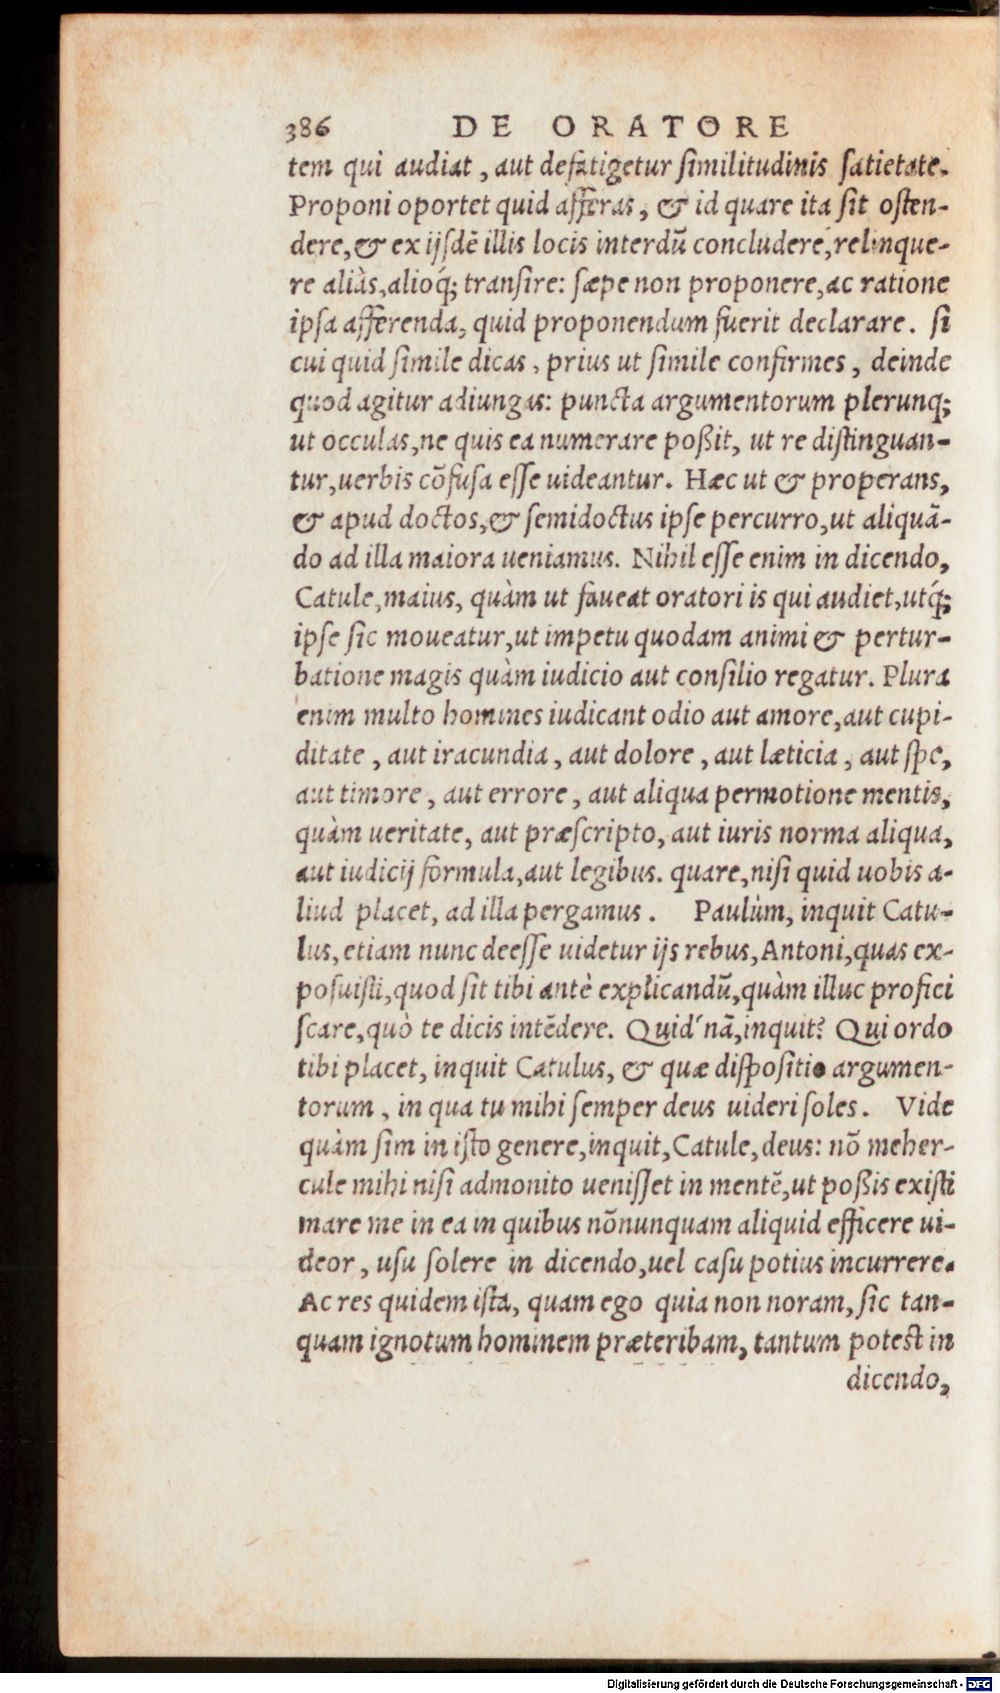 386 DE ORATORE
tem qui audiat, aut defatigetur similitudinis satietate.
Proponi oportet quid afferas, & id quare ita sit osten-
dere, & ex ijsdē illis locis interdū concludere, relinque-
re aliàs, alioq́; transire: sæpe non proponere, ac ratione
ipsa afferenda, quid proponendum fuerit declarare. si
cui quid simile dicas, prius ut simile confirmes, deinde
quod agitur adiungas: puncta argumentorum plerunq;
ut occulas, ne quis ea numerare poßit, ut re distinguan-
tur, uerbis cōfusa esse uideantur. Hæc ut & properans,
& apud doctos, & semidoctus ipse percurro, ut aliquā-
do ad illa maiora ueniamus. Nihil esse enim in dicendo,
Catule, maius, quàm ut faueat oratori is qui audiet, utq́;
ipse sic moueatur, ut impetu quodam animi & pertur-
batione magis quàm iudicio aut consilio regatur. Plura
enim multo homines iudicant odio aut amore, aut cupi-
ditate, aut iracundia, aut dolore, aut læticia, aut spe,
aut timore, aut errore, aut aliqua permotione mentis,
quàm ueritate, aut præscripto, aut iuris norma aliqua,
aut iudicij formula, aut legibus. quare, nisi quid uobis a-
liud placet, ad illa pergamus. Paulùm, inquit Catu-
lus, etiam nunc deesse uidetur ijs rebus, Antoni, quas ex-
posuisti, quod sit tibi antè explicandū, quàm illuc profici
scare, quò te dicis intēdere. Quid'nā, inquit? Qui ordo
tibi placet, inquit Catulus, & quæ dispositio argumen-
torum, in qua tu mihi semper deus uideri soles. Vide
quàm sim in isto genere, inquit, Catule, deus: nō meher-
cule mihi nisi admonito uenisset in mentē, ut poßis existi
mare me in ea in quibus nōnunquam aliquid efficere ui-
deor, usu solere in dicendo, uel casu potius incurrere.
Ac res quidem ista, quam ego quia non noram, sic tan-
quam ignotum hominem præteribam, tantum potest in
dicendo,
Digitalisierung gefördert durch die Deutsche Forschungsgemeinschaft - DFG